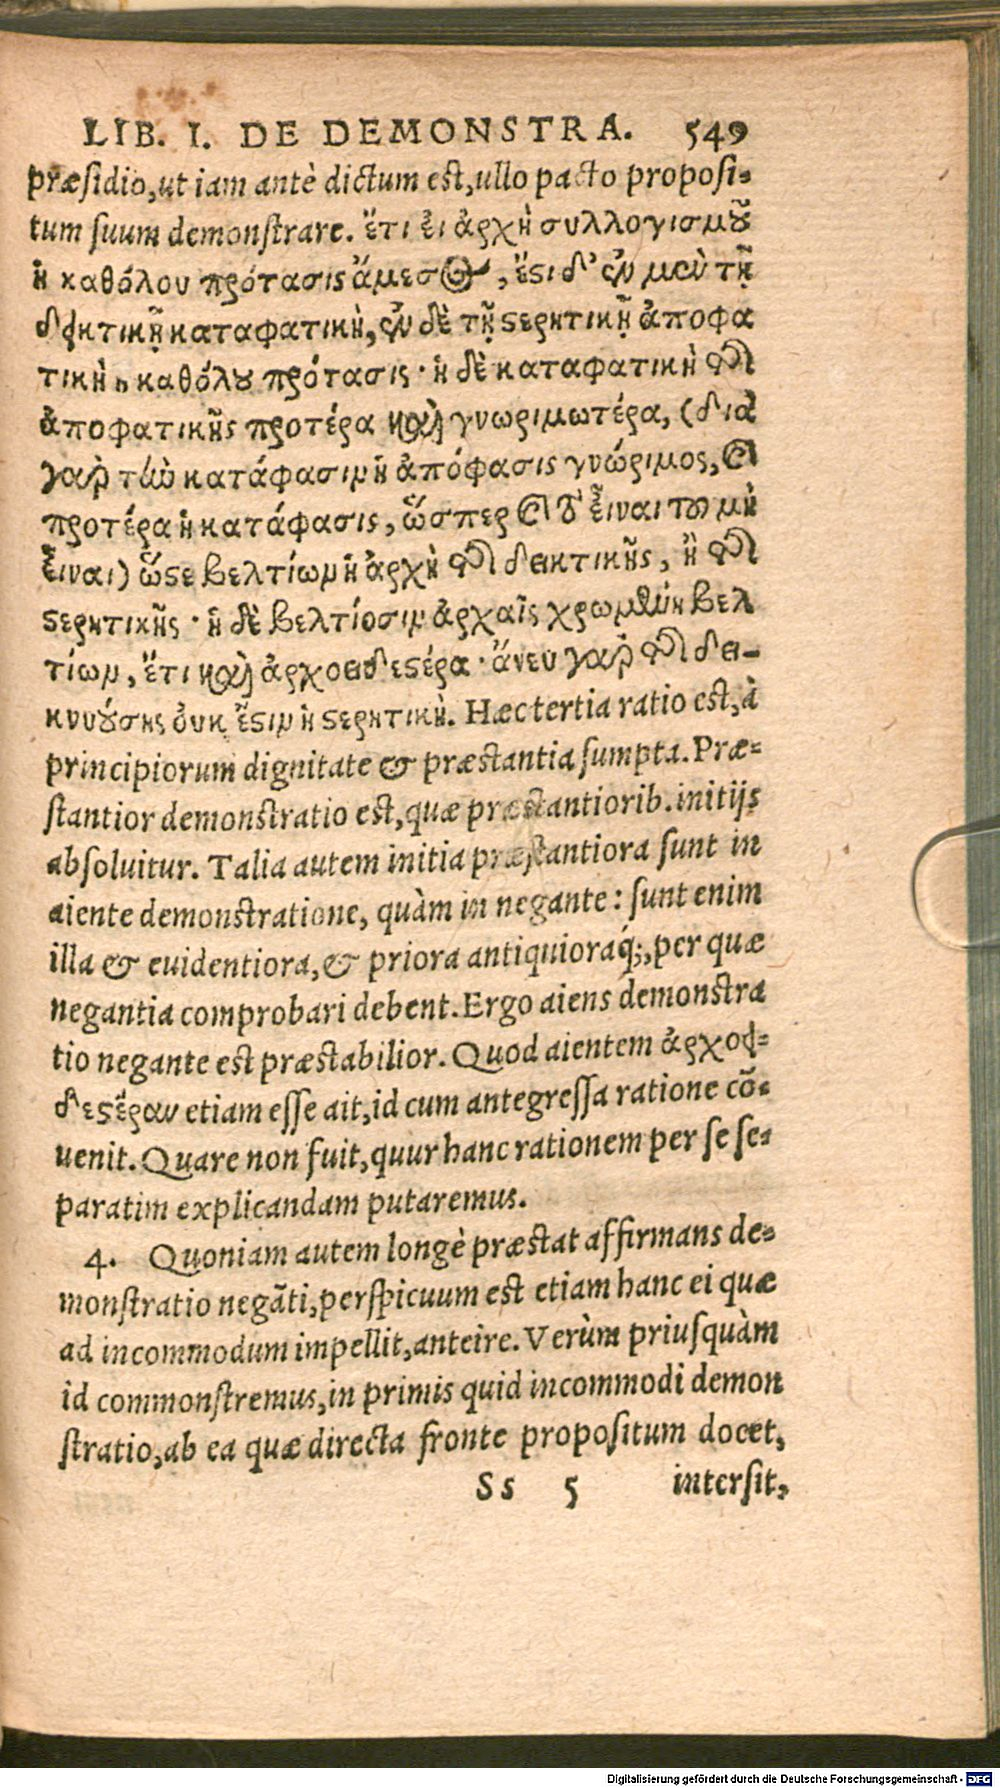 LIB. I. DE DEMONSTRA. 549
præsidio, ut iam antè dictum est, ullo pacto proposi-
tum suum demonstrare. ἔτι εἰ ἀρχὴ συλλογισμοῦ
ἡ καθόλου πρότασις ἄμεσος, ἔστι δ' ἐν μὲν τῇ
δεικτικῇ καταφατικὴ, ἐν δὲ τῇ στερητικῇ ἀποφα
τικὴ ἡ καθόλου πρότασις · ἡ δὲ καταφατικὴ τῆς
ἀποφατικῆς προτέρα καὶ γνωριμωτέρα, (διὰ
γὰρ τὴν κατάφασιν ἡ ἀπόφασις γνώριμος, καὶ
προτέρα ἡ κατάφασις, ὥσπερ καὶ τὸ εἶναι τοῦ μὴ
εἶναι) ὥστε βελτίων ἡ ἀρχὴ τῆς δεικτικῆς, ἢ τῆς
στερητικῆς · ἡ δὲ βελτίοσιν ἀρχαῖς χρωμένη βελ
τίων, ἔτι καὶ ἀρχοειδεστέρα · ἄνευ γὰρ τῆς δει-
κνυούσης οὐκ ἔστιν ἡ στερητικὴ. Hæc tertia ratio est, à
principiorum dignitate & præstantia sumpta. Præ-
stantior demonstratio est, quæ præstantiorib. initijs
absoluitur. Talia autem initia præstantiora sunt in
aiente demonstratione, quàm in negante: sunt enim
illa & euidentiora, & priora antiquioraq́;, per quæ
negantia comprobari debent. Ergo aiens demonstra
tio negante est præstabilior. Quod aientem ἀρχοει-
δεστέραν etiam esse ait, id cum antegressa ratione cō-
uenit. Quare non fuit, quur hanc rationem per se se-
paratim explicandam putaremus.
4. Quoniam autem longè præstat affirmans de-
monstratio negāti, perspicuum est etiam hanc ei quæ
ad incommodum impellit, anteire. Verùm priusquàm
id commonstremus, in primis quid incommodi demon
stratio, ab ea quæ directa fronte propositum docet,
Ss 5 intersit,
Digitalisierung gefördert durch die Deutsche Forschungsgemeinschaft - DFG